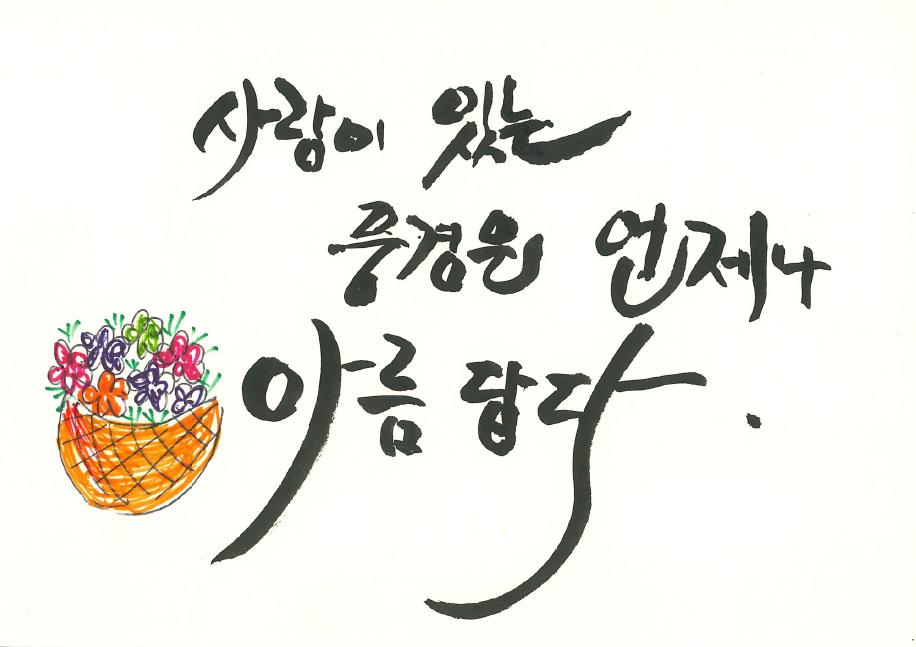 사랑이 있는
풍경은 언제나
아름답다.